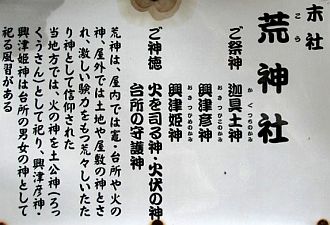 末社
荒神社
こう
ご祭神 迦具土神
かぐつちのかみ
興津彦神
おきつひこのかみ
興津姫神
おきつひめのかみ
ご神徳 火を司る神・火伏の神
台所の守護神
荒神は、屋内では竈・台所や火の
神、屋外では土地や屋敷の神とさ
れ、激しい験力をもつ荒々しいたた
り神として信仰された
当地方では、火の神を土公神（ろっ
くうさん）として祀り、興津彦神・
興津姫神は台所の男女の神として
祀る風習がある